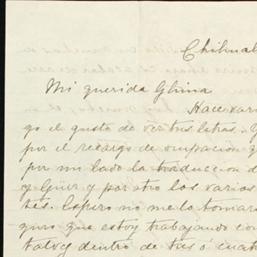 Chihuah
Mi querida Ghina
Hace vari
go el gusto de ver tus letras.
por el recargo de ocupacion q
por mi lado la traduccion d
y por otro los varios
tes. Espero no me lo tomara
guro que estoy trabajando con
dentro de tres ó cuat